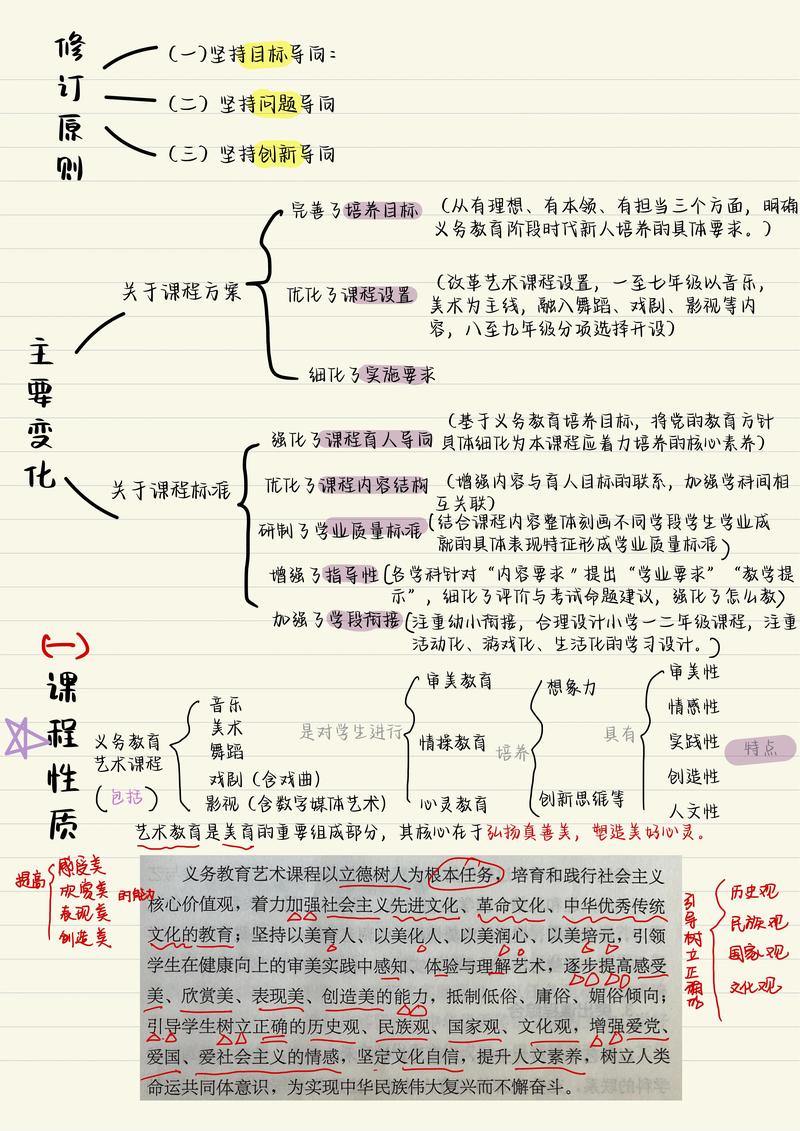 修订原则
(一)坚持目标导向:
(二)坚持问题导向
(三)坚持创新导向
主要变化
关于课程方案
完善了培养目标
(从有理想、有本领、有担当三个方面,明确
义务教育阶段时代新人培养的具体要求。)
优化了课程设置
(改革艺术课程设置,一至七年级以音乐,
美术为主线,融入舞蹈、戏剧、影视等内
容,八至九年级分项选择开设)
细化了实施要求
关于课程标准
强化了课程育人导向
(基于义务教育培养目标,将党的教育方针
具体细化为本课程应着力培养的核心素养)
优化了课程内容结构
(增强内容与育人目标的联系,加强学科间相
互关联)
研制了学业质量标准
(结合课程内容整体刻画不同学段学生学业成
就的具体表现特征形成学业质量标准)
增强了指导性
(各学科针对“内容要求”提出“学业要求”“教学提
示”,细化了评价与考试命题建议,强化了怎么教)
加强了学段衔接
(注重幼小衔接,合理设计小学一二年级课程,注重
活动化、游戏化、生活化的学习设计。)
(一)
课程性质
义务教育
艺术课程
(包括)
音乐
美术
舞蹈
戏剧(含戏曲)
影视(含数字媒体艺术)
是对学生进行
审美教育
情操教育
心灵教育
培养
想象力
创新思维等
具有
审美性
情感性
实践性
创造性
人文性
特点
艺术教育是美育的重要组成部分,其核心在于弘扬真善美,塑造美好心灵。
提高
感受美
欣赏美
表现美
创造美
的能力
义务教育艺术课程以立德树人为根本任务,培育和践行社会主义
核心价值观,着力加强社会主义先进文化、革命文化、中华优秀传统
文化的教育;坚持以美育人、以美化人、以美润心、以美培元,引领
学生在健康向上的审美实践中感知、体验与理解艺术,逐步提高感受
美、欣赏美、表现美、创造美的能力,抵制低俗、庸俗、媚俗倾向;
引导学生树立正确的历史观、民族观、国家观、文化观,增强爱党、
爱国、爱社会主义的情感,坚定文化自信,提升人文素养,树立人类
命运共同体意识,为实现中华民族伟大复兴而不懈奋斗。
引导树立正确的
历史观
民族观
国家观
文化观